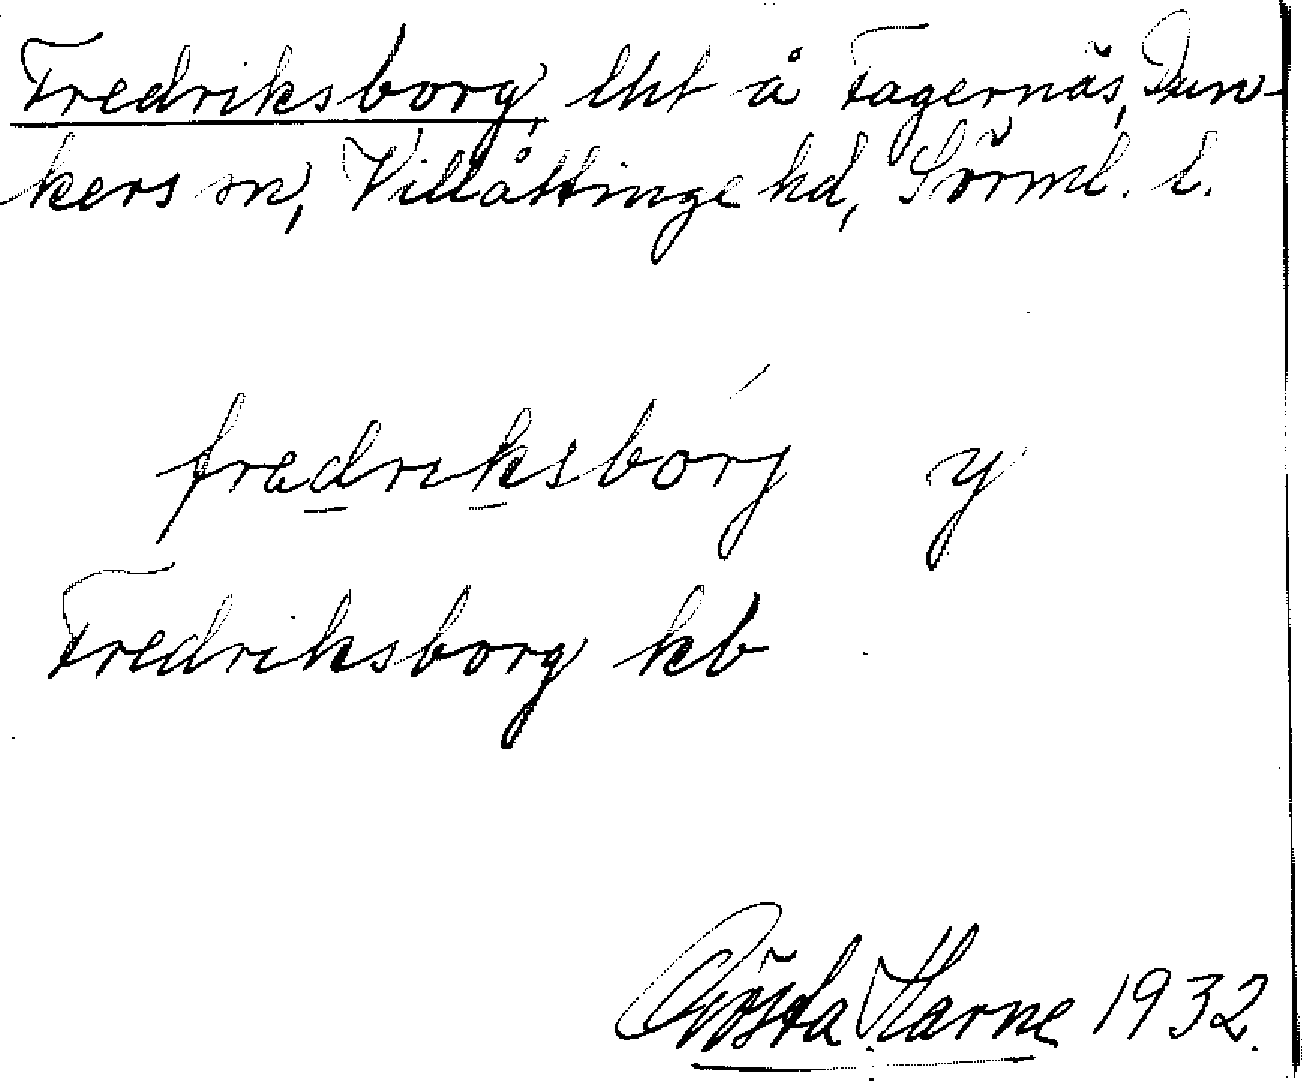 Fredriksborg, lht å Fagernäs, Dun-
kers sn, Villåttinge hd, Sörml. l.
fredriksbórj y
Fredriksborg kb
Gösta Harne 1932.